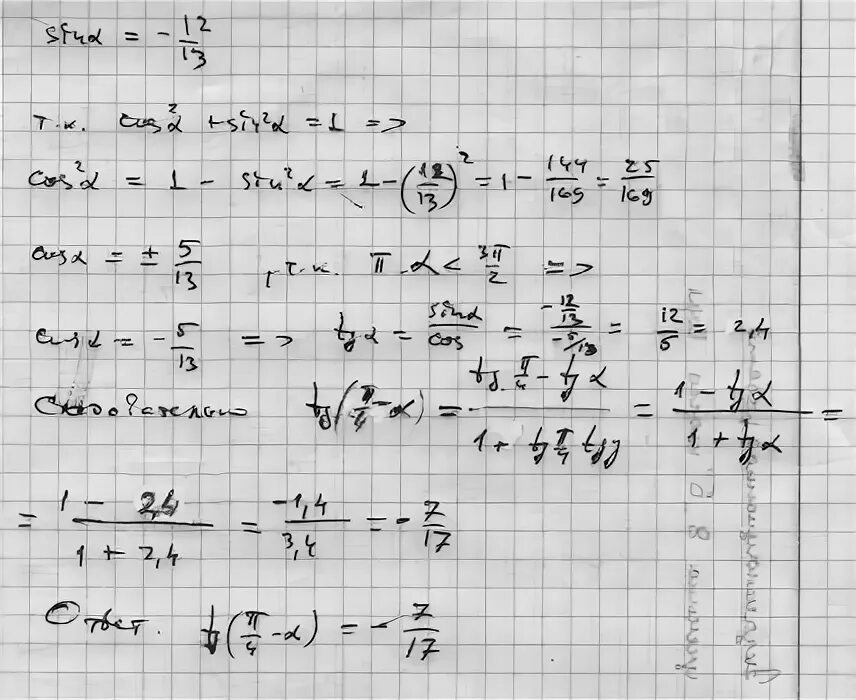 sinα = -12/13
т.к. cos²α + sin²α = 1 =>
cos²α = 1 - sin²α = 1 - (12/13)² = 1 - 144/169 = 25/169
cosα = ± 5/13 , т.к. π < α < 3π/2 =>
cosα = -5/13 => tgα = sinα/cos = (-12/13)/(-5/13) = 12/5 = 2,4
Следовательно tg(π/4 - α) = (tg π/4 - tgα)/(1 + tg π/4 tgy) = (1 - tgα)/(1 + tgα) =
= (1 - 2,4)/(1 + 2,4) = -1,4/3,4 = -7/17
Ответ. tg(π/4 - α) = -7/17